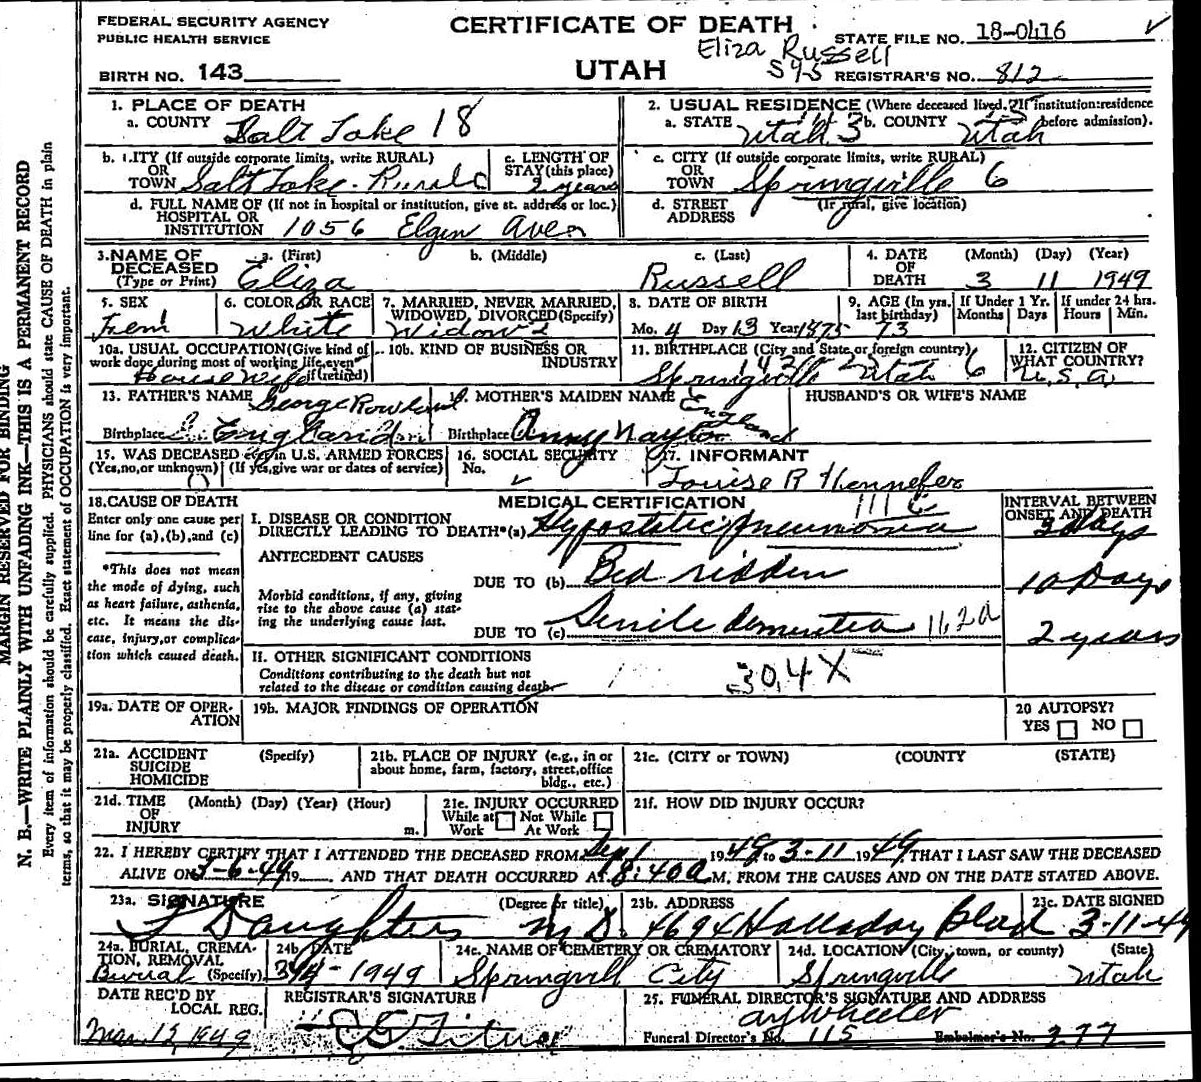 FEDERAL SECURITY AGENCY
PUBLIC HEALTH SERVICE
CERTIFICATE OF DEATH
STATE FILE NO. 18-0416
Eliza Russell
BIRTH NO. 143
UTAH
545
REGISTRAR'S NO. 812
MARGIN RESERVED FOR BINDING
N. B.—WRITE PLAINLY WITH UNFADING INK—THIS IS A PERMANENT RECORD
Every item of information should be carefully supplied. PHYSICIANS should state CAUSE OF DEATH in plain
terms, so that it may be properly classified. Exact statement of OCCUPATION is very important.
1. PLACE OF DEATH
a. COUNTY Salt Lake 18
2. USUAL RESIDENCE (Where deceased lived. If institution:residence
before admission).
a. STATE Utah b. COUNTY Utah
b. CITY (If outside corporate limits, write RURAL)
OR
TOWN Salt Lake-Rural
c. LENGTH OF
STAY (this place)
2 years
c. CITY (If outside corporate limits, write RURAL)
OR
TOWN Springville 6
d. FULL NAME OF (If not in hospital or institution, give st. address or loc.)
HOSPITAL OR
INSTITUTION 1056 Elgin Ave
d. STREET
ADDRESS
(If rural, give location)
3. NAME OF
DECEASED
(Type or Print)
a. (First) Eliza
b. (Middle)
c. (Last) Russell
4. DATE
OF
DEATH
(Month) (Day) (Year)
3 11 1949
5. SEX
Fem
6. COLOR OR RACE
White
7. MARRIED, NEVER MARRIED,
WIDOWED, DIVORCED (Specify)
Widow
8. DATE OF BIRTH
Mo. 4 Day 13 Year 1875
9. AGE (In yrs.
last birthday)
73
If Under 1 Yr.
Months Days
If under 24 hrs.
Hours Min.
10a. USUAL OCCUPATION (Give kind of
work done during most of working life, even
if retired)
Housewife
10b. KIND OF BUSINESS OR
INDUSTRY
11. BIRTHPLACE (City and State or foreign country)
Springville Utah 6
12. CITIZEN OF
WHAT COUNTRY?
U.S.A.
13. FATHER'S NAME George Rowland
Birthplace England
MOTHER'S MAIDEN NAME
Birthplace Anny Naylor England
HUSBAND'S OR WIFE'S NAME
15. WAS DECEASED ever in U.S. ARMED FORCES
(Yes, no, or unknown) (If yes, give war or dates of service)
16. SOCIAL SECURITY
No.
17. INFORMANT
Louise R Hennefer
18. CAUSE OF DEATH
Enter only one cause per
line for (a), (b), and (c)
*This does not mean
the mode of dying, such
as heart failure, asthenia,
etc. It means the dis-
ease, injury, or complica-
tion which caused death.
MEDICAL CERTIFICATION
INTERVAL BETWEEN
ONSET AND DEATH
I. DISEASE OR CONDITION
DIRECTLY LEADING TO DEATH*(a) Hypostatic pneumonia
Days
ANTECEDENT CAUSES
DUE TO (b) Bed ridden
10 Days
Morbid conditions, if any, giving
rise to the above cause (a) stat-
ing the underlying cause last.
DUE TO (c) Senile dementia 162a
2 years
II. OTHER SIGNIFICANT CONDITIONS
Conditions contributing to the death but not
related to the disease or condition causing death.
304X
19a. DATE OF OPER-
ATION
19b. MAJOR FINDINGS OF OPERATION
20 AUTOPSY?
YES NO
21a. ACCIDENT
SUICIDE
HOMICIDE
(Specify)
21b. PLACE OF INJURY (e.g., in or
about home, farm, factory, street, office
bldg., etc.)
21c. (CITY or TOWN) (COUNTY) (STATE)
21d. TIME
OF
INJURY
(Month) (Day) (Year) (Hour)
m.
21e. INJURY OCCURRED
While at Work
Not While At Work
21f. HOW DID INJURY OCCUR?
22. I HEREBY CERTIFY THAT I ATTENDED THE DECEASED FROM Sep 1 1948 to 3-11 1949 THAT I LAST SAW THE DECEASED
ALIVE ON 3-6-49 19 AND THAT DEATH OCCURRED AT 8:40a M, FROM THE CAUSES AND ON THE DATE STATED ABOVE.
23a. SIGNATURE
(Degree or title)
Daughters M.D.
23b. ADDRESS
4694 Holladay Blvd
23c. DATE SIGNED
3-11-49
24a. BURIAL, CREMA-
TION, REMOVAL
(Specify)
Burial
24b. DATE
1949
24c. NAME OF CEMETERY OR CREMATORY
Springvill City
24d. LOCATION (City, town, or county) (State)
Springville Utah
DATE REC'D BY
LOCAL REG.
Mar. 12, 1949
REGISTRAR'S SIGNATURE
25. FUNERAL DIRECTOR'S SIGNATURE AND ADDRESS
ay Wheeler
Funeral Director's No. 115
Embalmer's No. 277